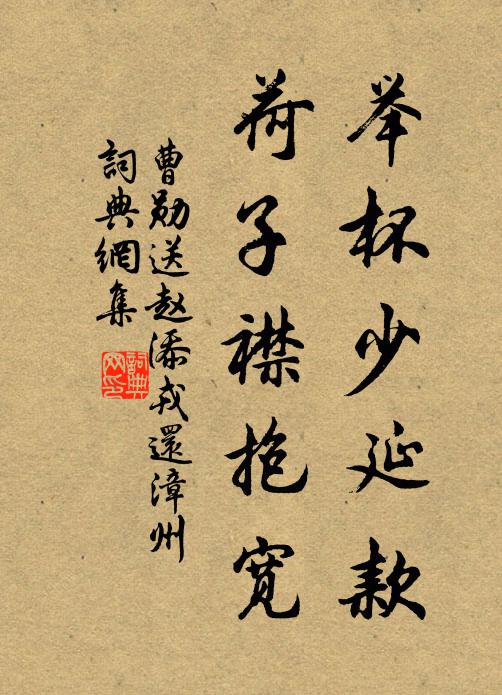 举杯少延款
荷子襟抱宽
曹勋送赵添戎還漳州
詞典網集
詞典網印